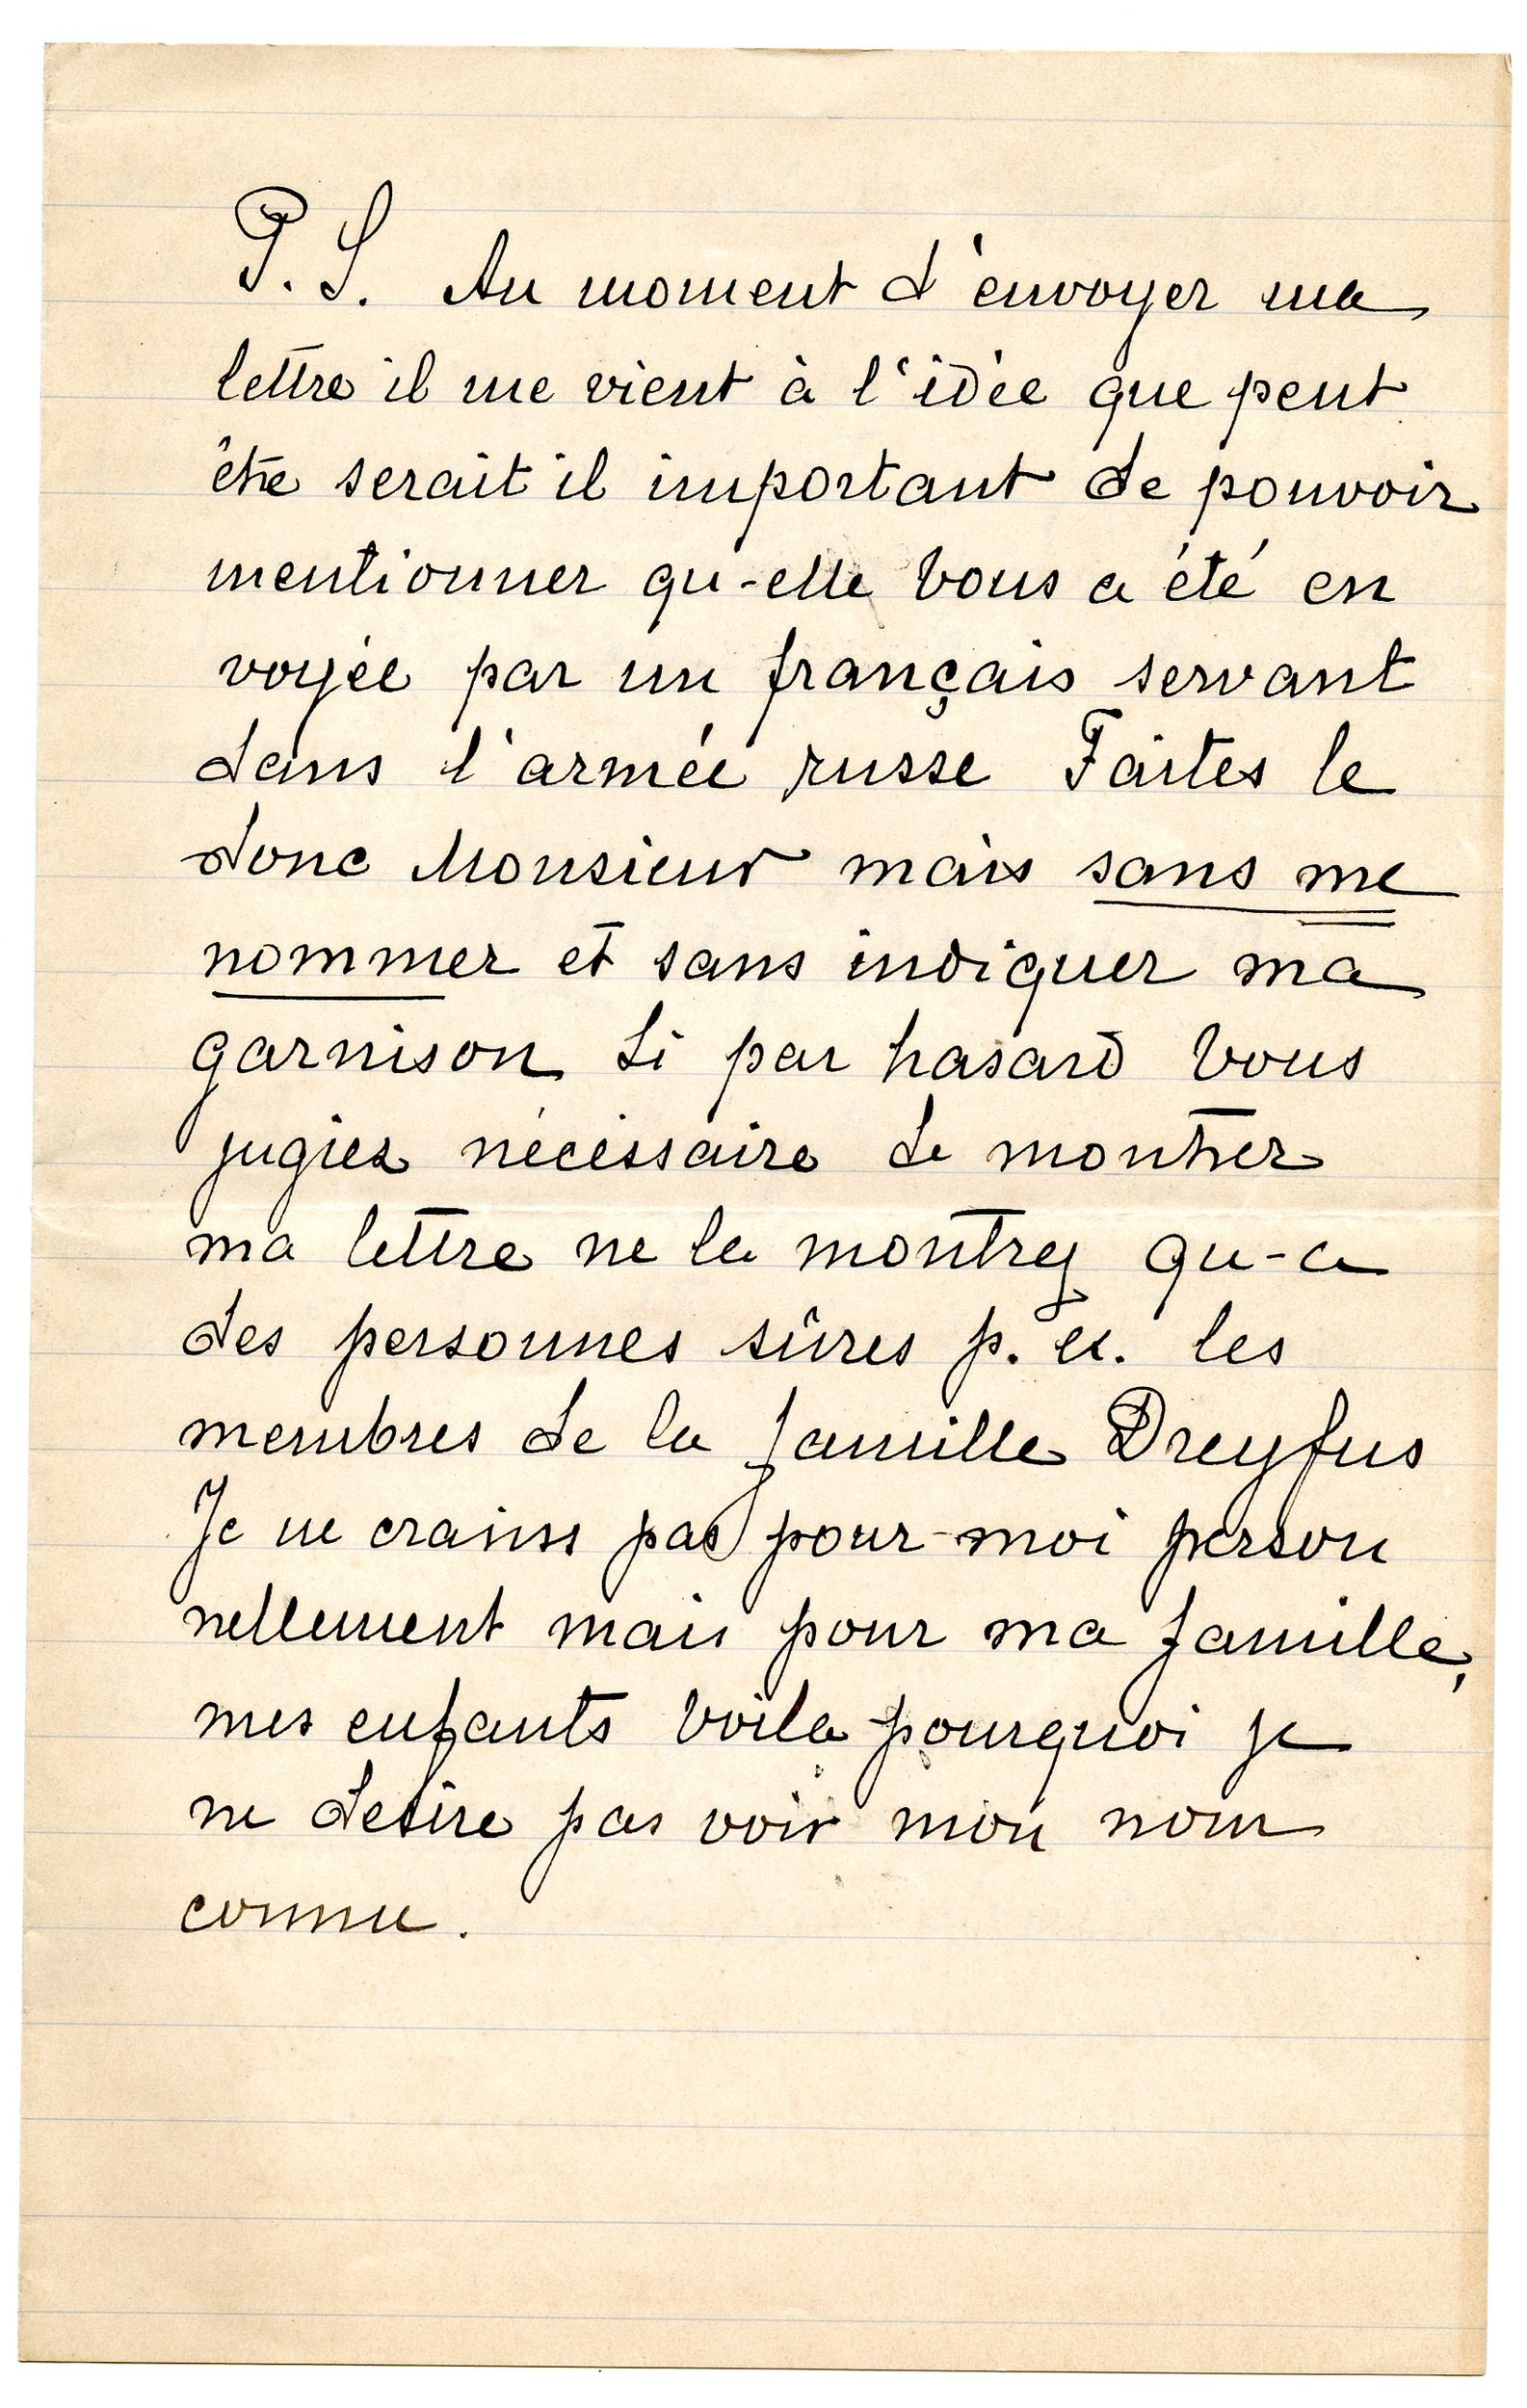 P. S. Au moment d'envoyer ma
lettre il me vient à l'idée que peut
être serait il important de pouvoir
mentionner qu-elle vous a été en
voyée par un français servant
dans l'armée russe Faites le
donc Monsieur mais sans me
nommer et sans indiquer ma
garnison Si par hasard vous
jugiez nécessaire de montrer
ma lettre ne la montrez qu-a
des personnes sûres p. ex. les
membres de la famille Dreyfus
Je ne crains pas pour moi person
nellement mais pour ma famille,
mes enfants voila pourquoi je
ne desire pas voir mon nom
connu.